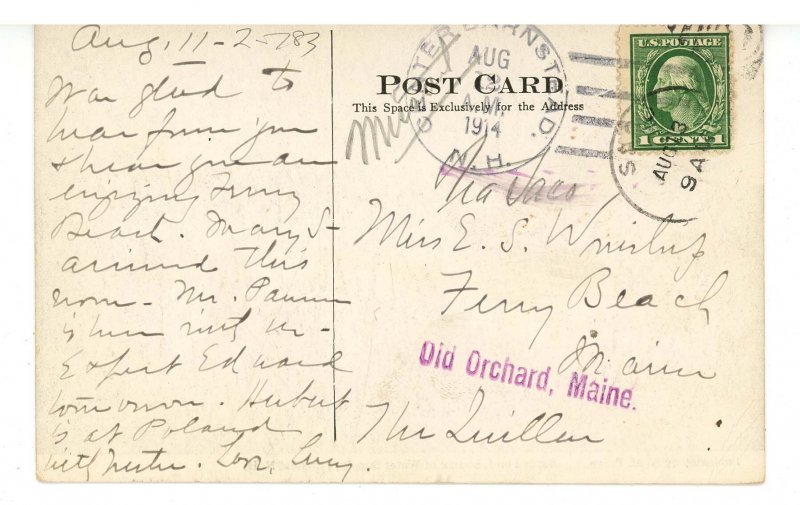 Aug. 11-2-783
Was glad to
hear from you
& hear you are
enjoying Ferry
Beach. Mary S-
arrived this
morn- Mr.
is here with us-
Expect Edward
tomorrow. Herbert
is at Poland
with Lov, Lucy.
CENTER BARNSTEAD,
AUG
A.M.
1914
N.H.
POST CARD
This Space is Exclusively for the Address
U.S. POSTAGE
1 CENT 1
AUG 13
9 A
Via Saco
Miss E. S. Winslip
Ferry Beach
Maine
Old Orchard, Maine.